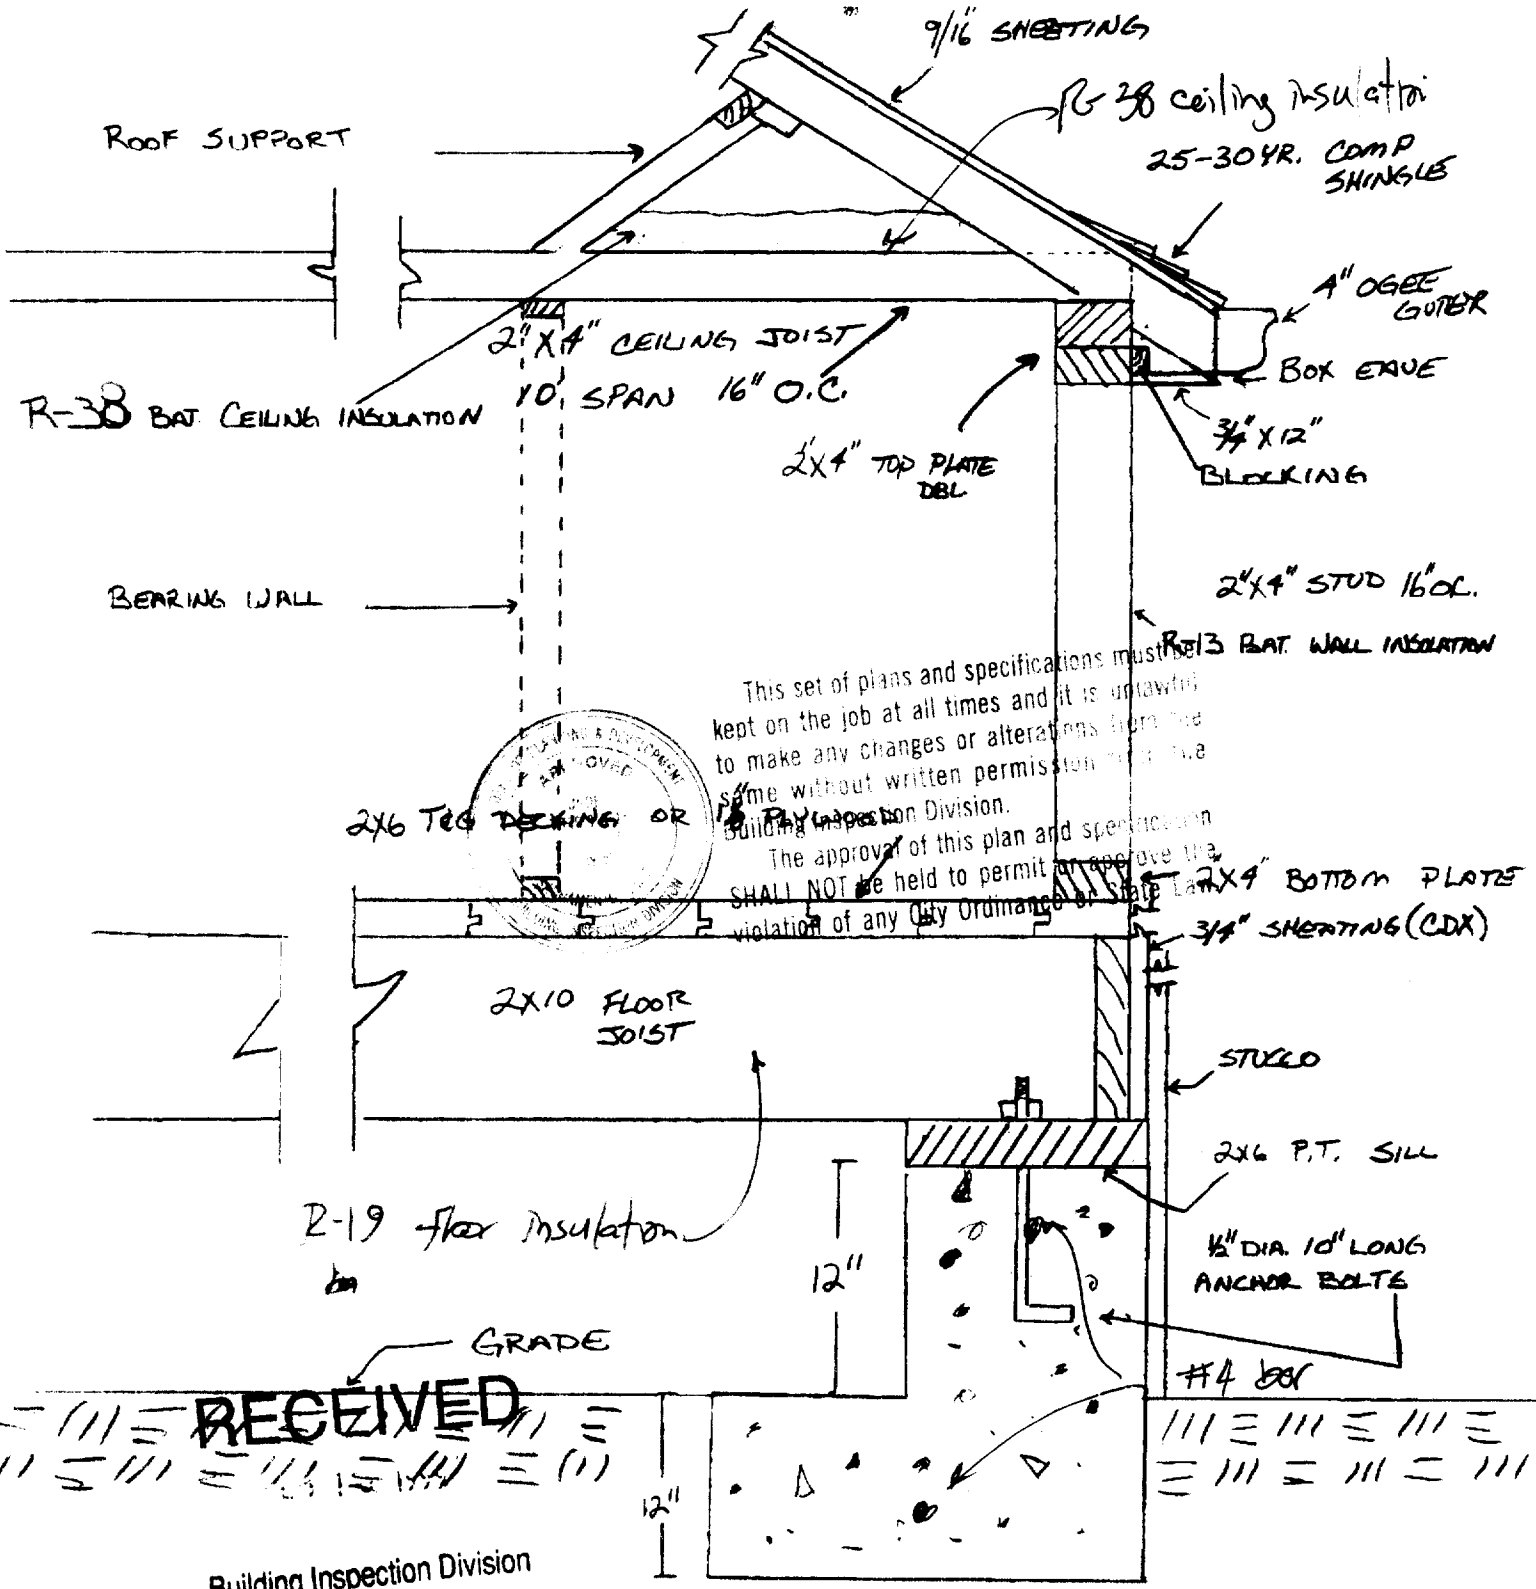 9/16" SHEETING
R-38 ceiling insulation
ROOF SUPPORT
25-30 YR. COMP
SHINGLE
4" OGEE
GUTER
2"X4" CEILING JOIST
10' SPAN 16" O.C.
BOX EAVE
R-38 BAT. CEILING INSULATION
3/4" X 12"
BLOCKING
2"X4" TOP PLATE
DBL
BEARING WALL
2"X4" STUD 16" OC.
R-13 BAT. WALL INSOLATION
This set of plans and specifications must be
kept on the job at all times and it is unlawful
to make any changes or alterations from the
same without written permission
Building Inspection Division.
The approval of this plan and specification
SHALL NOT be held to permit or approve the
violation of any City Ordinance or State Law.
PLANNING & DEVELOPMENT
APPROVED
DIVISION
2X6 T&G DECKING OR PLYWOOD
2X4" BOTTOM PLATE
3/4" SHEATING (CDX)
2X10 FLOOR
JOIST
STUCCO
2X6 P.T. SILL
R-19 floor insulation
12"
1/2" DIA. 10" LONG
ANCHOR BOLTS
GRADE
#4 bar
RECEIVED
12"
Building Inspection Division